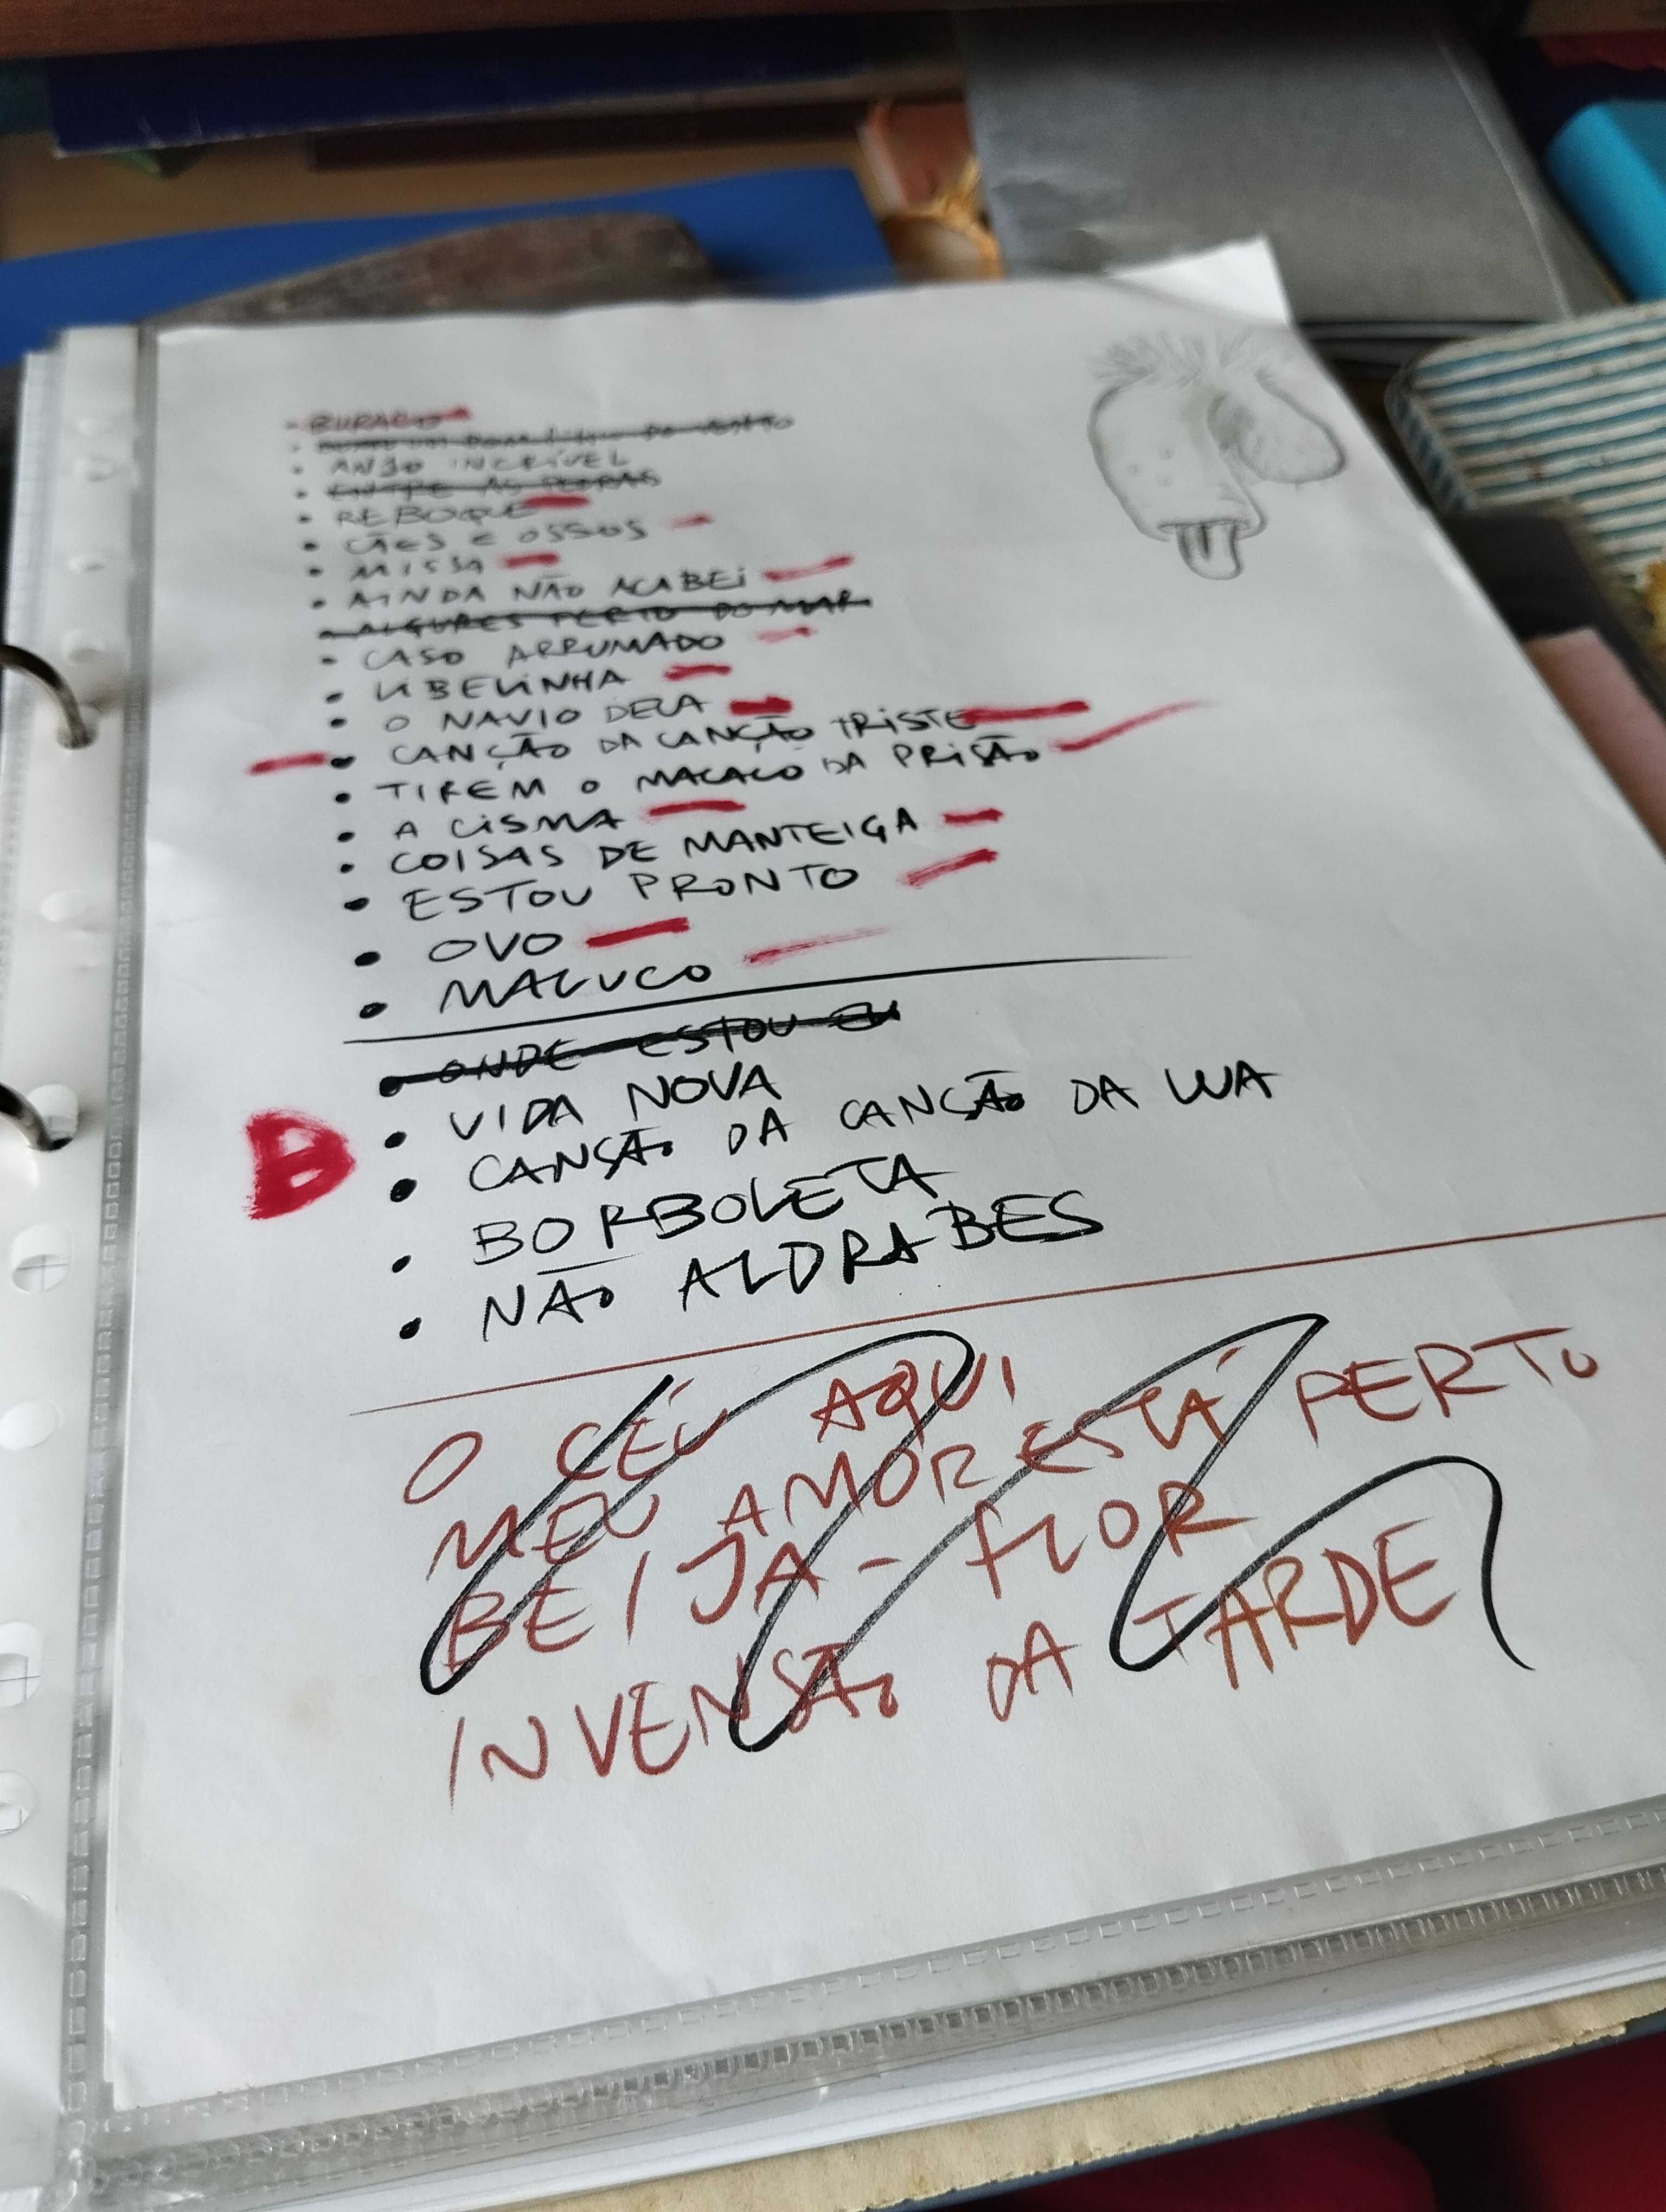 - BURACO
- ANJO INCRÍVEL
- ENTRE AS PEDRAS
- REBOQUE
- CÃES E OSSOS
- MISSA
- AINDA NÃO ACABEI
- ALGURES PERTO DO MAR
- CASO ARRUMADO
- LIBELINHA
- O NAVIO DELA
- CANÇÃO DA CANÇÃO TRISTE
- TIREM O MACACO DA PRISÃO
- A CISMA
- COISAS DE MANTEIGA
- ESTOU PRONTO
- OVO
- MALUCO
- ONDE ESTOU EU
- VIDA NOVA
B
- CANSÃO DA CANSÃO DA LUA
- BORBOLETA
- NÃO ALDRABES
O CÉU AQUI
MEU AMOR ESTÁ PERTO
BEIJA-FLOR
INVENSÃO DA TARDE